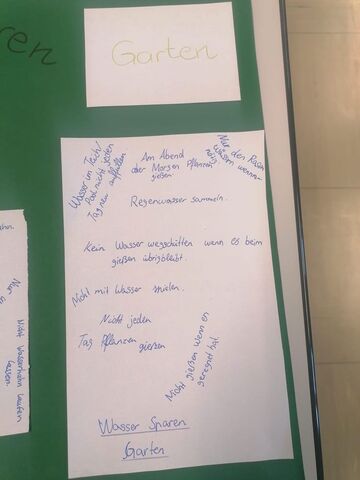 ren
Garten
Wasser im Teich/
Pool nicht jeden
Tag neu auffüllen.
Am Abend
oder Morgen Pflanzen
gießen.
Nur den Rasen
wässern wenn
nötig
Regenwasser sammeln.
Kein Wasser wegschütten wenn es beim
gießen übrigbleibt.
Nicht mit Wasser spielen.
Nicht jeden
Tag Pflanzen gießen
Nicht gießen wenn es
geregnet hat.
Wasser Sparen
Garten
Nicht Wasserhahn laufen
lassen.